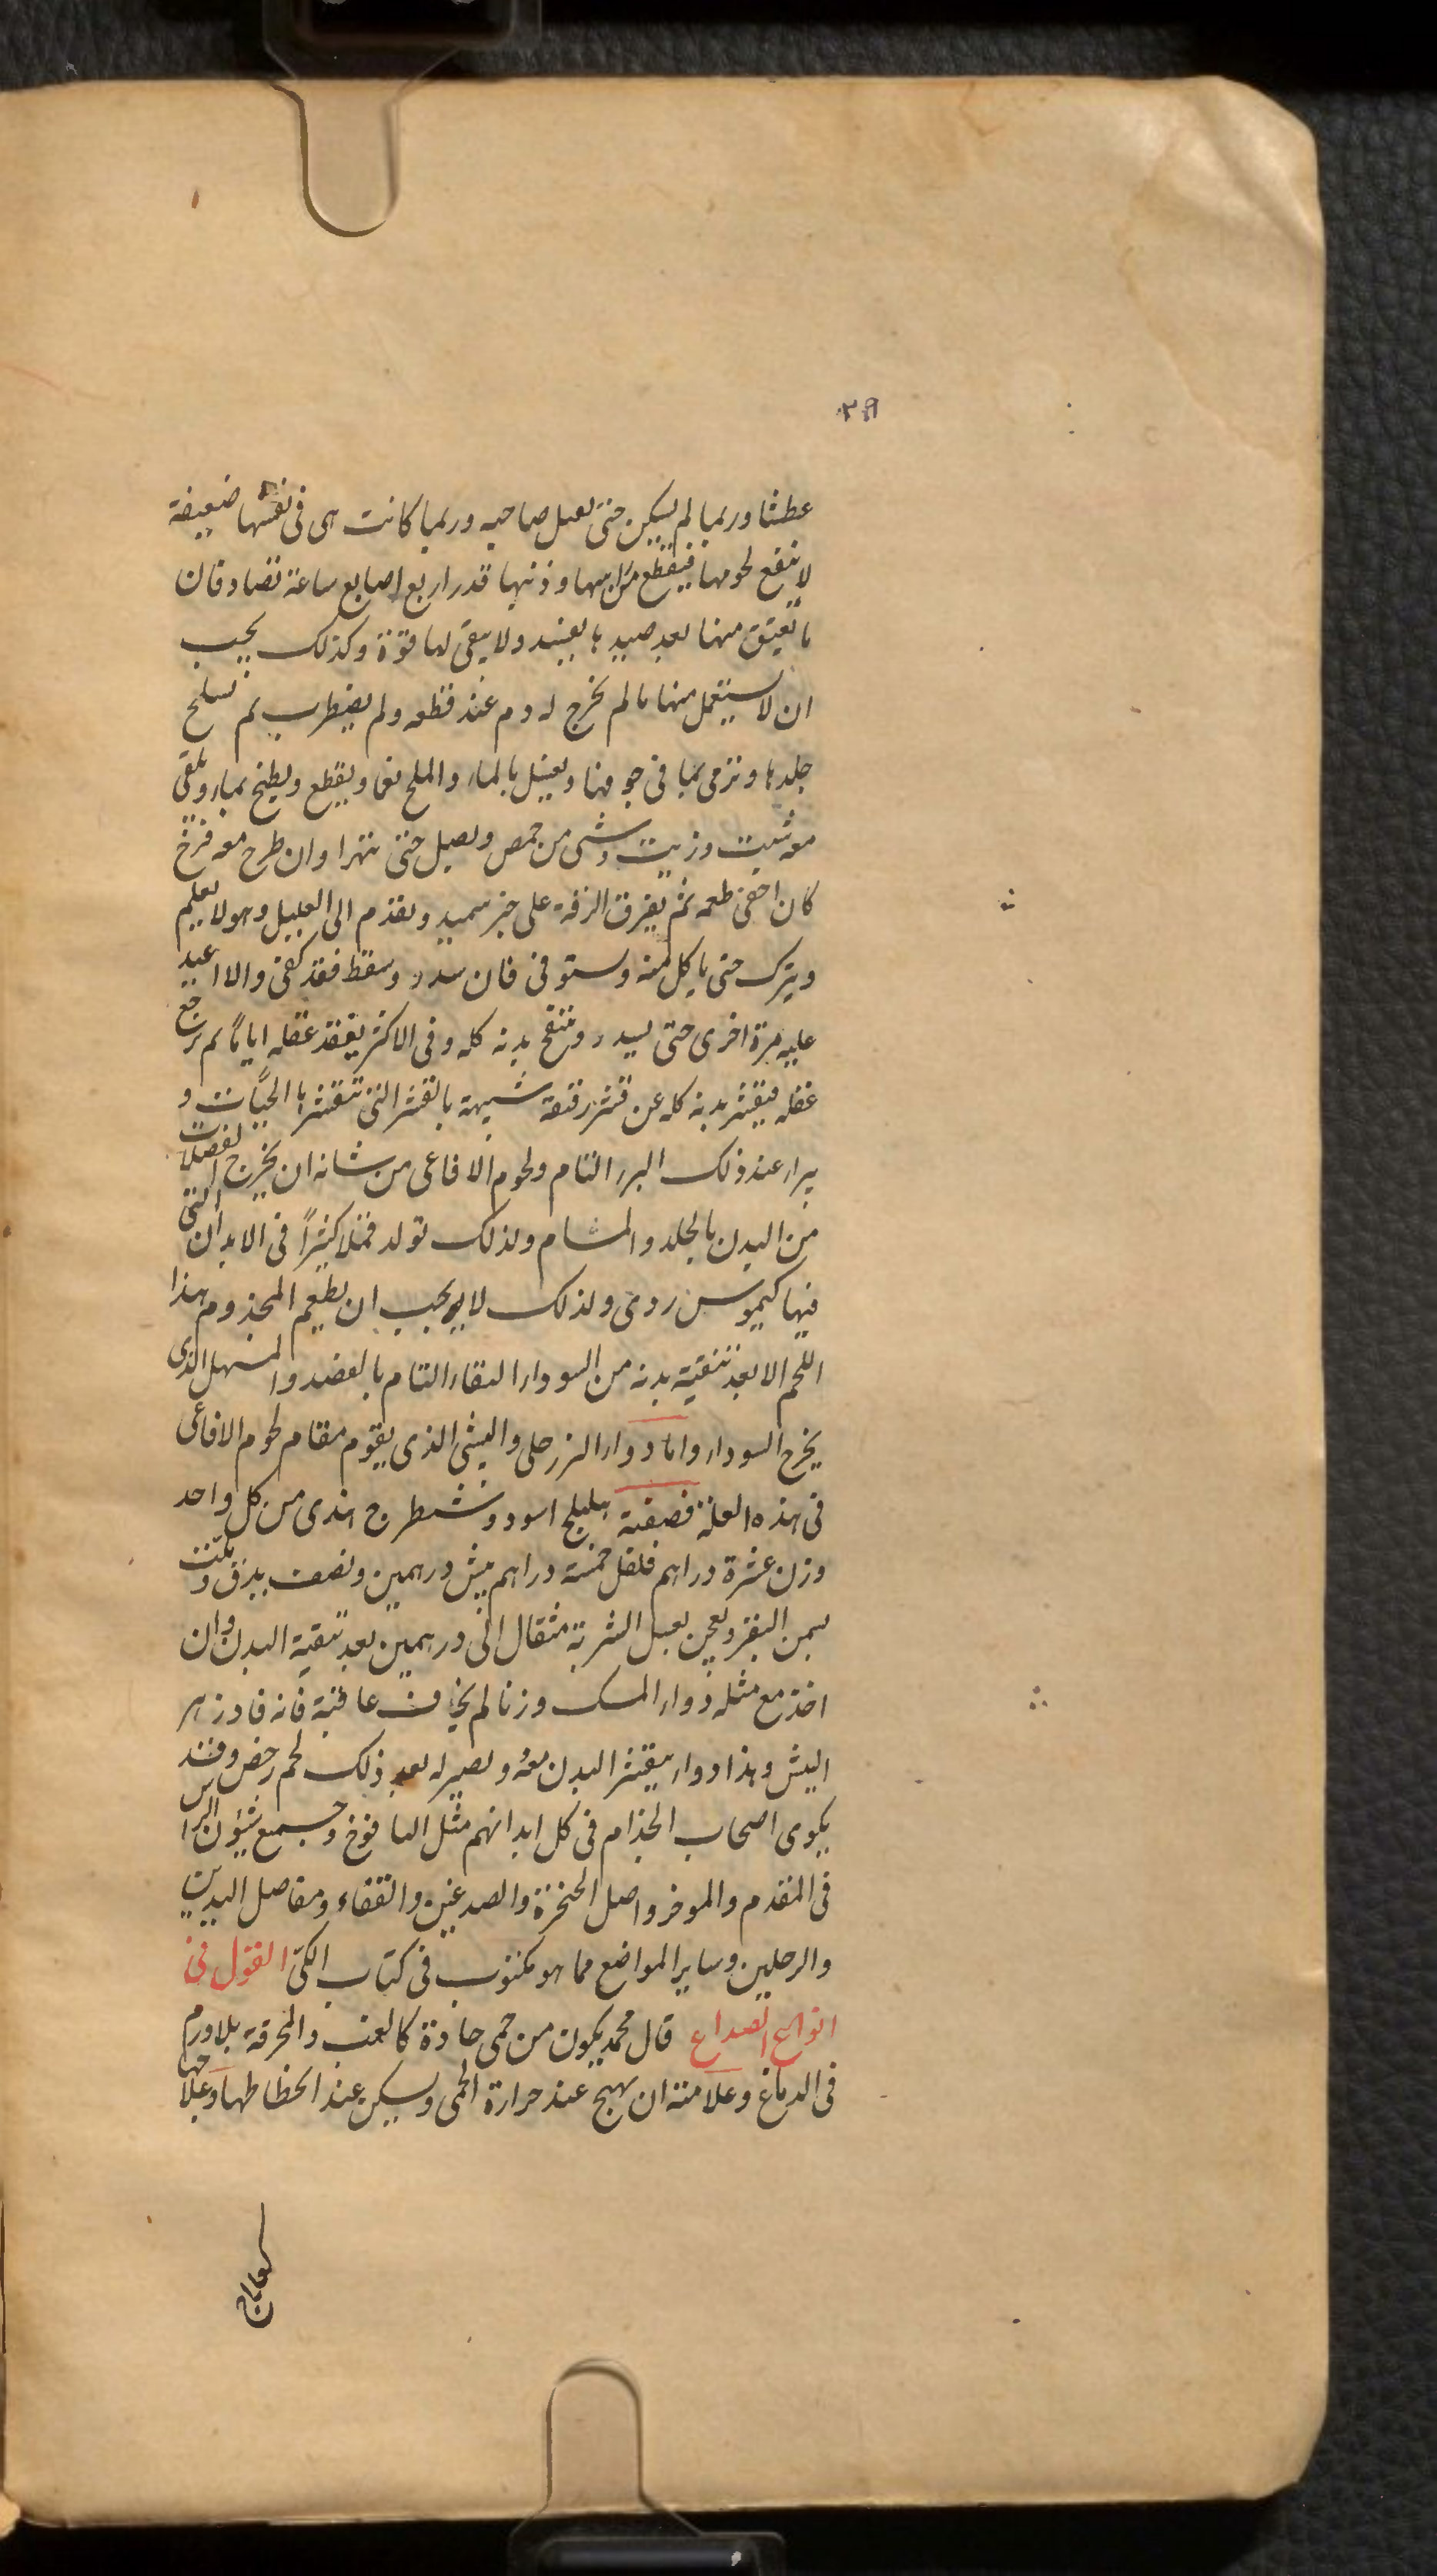 ٢٩
عطشا وربما لم يسكن حتى يعمل صاحبه وربما كانت هى فى نفسها ضعيفة
لا ينتفع لحومها فيقطع من راسها وذنبها قدر اربع اصابع ساعة تصاد فان
ما تعيق منها بعد صيدها يعيند ولا يبقى لها قوة وكذلك يجب
ان لا يستعمل منها ما لم يخرج له دم عند قطعه ولم يضطرب ثم تسلخ
جلدها وترمى بما فى جوفها ويغسل بالماء والملح نعما ويقطع ويطبخ بماء ويلقى
معه شبت وزيت وشى من حمص وبصل حتى يتهرا وان طرح معه فرخ
كان اخفى طعمه ثم يغرق المرقة على خبز سميد ويقدم الى العليل وهو لا يعلم
ويترك حتى ياكل منه ويستوفى فان سدر وسقط فقد كفى والا اعيد
عليه مرة اخرى حتى يسدر وينتفخ بدنه كله وفى الاكثر يفقد عقله اياماً ثم يرجع
عقله فيقشر بدنه كله عن قشر رقيقة شبيهة بالقشر التى تتقشرها الحيّات و
يبراء عند ذلك البرء التام ولحوم الافاعى من شانه ان يخرج الفضلات
من البدن بالجلد والمسام ولذلك تولد قملا كثيراً فى الابدان التى
فيها كيموس ردى ولذلك لا يجب ان يطعم المجذوم هذا
اللحم الا بعد تنقية بدنه من السوداء النقاء التام بالفصد والمسهل الذى
يخرج السوداء واما دواء البزرجلى والبيش الذى يقوم مقام لحوم الافاعى
فى هذه العلة فصفته هليلج اسود وشيطرج هندى من كل واحد
وزن عشرة دراهم فلفل خمسة دراهم بيش درهمين ونصف يدق ويلتّ
بسمن البقر ويعجن بعسل الشربة مثقال الى درهمين بعد تنقية البدن وان
اخذ مع مثله دواء المسك وزنا لم يخاف عاقبة فانه فادزهر
البيش وهذا دواء يقشر البدن معه ويصير له بعد ذلك لحم رخص وقد
يكوى اصحاب الجذام فى كل ابدانهم مثل اليافوخ وجميع شئون الراس
فى المقدم والموخر واصل الحنجرة والصدغين والقفاء ومفاصل اليدين
والرجلين وساير المواضع مما هو مكتوب فى كتاب الكى القول فى
انواع الصداع قال محمد يكون من حمى حادة كالغب والمحرقة بلا ورم
فى الدماغ وعلامته ان يهيج عند حرارة الحمى ويسكن عند انحطاطها وعلاجها